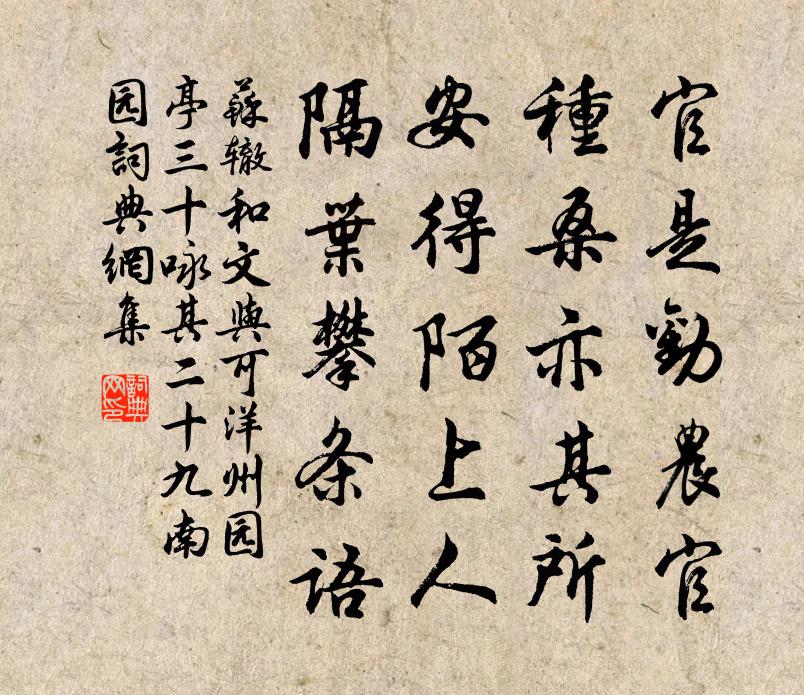 官是勸農官
種桑亦其所
安得陌上人
隔葉攀条語
蘇辙和文與可洋州园
亭三十咏其二十九南
园詞典網集
詞典
网印